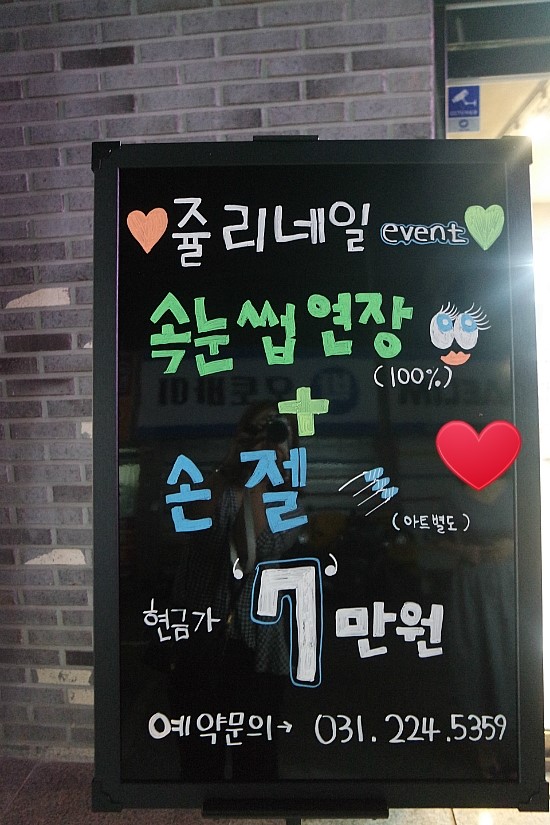 쥴리네일 event
속눈썹연장
(100%)
+
손젤
(아트별도)
현금가 '7' 만원
예약문의→ 031.224.5359